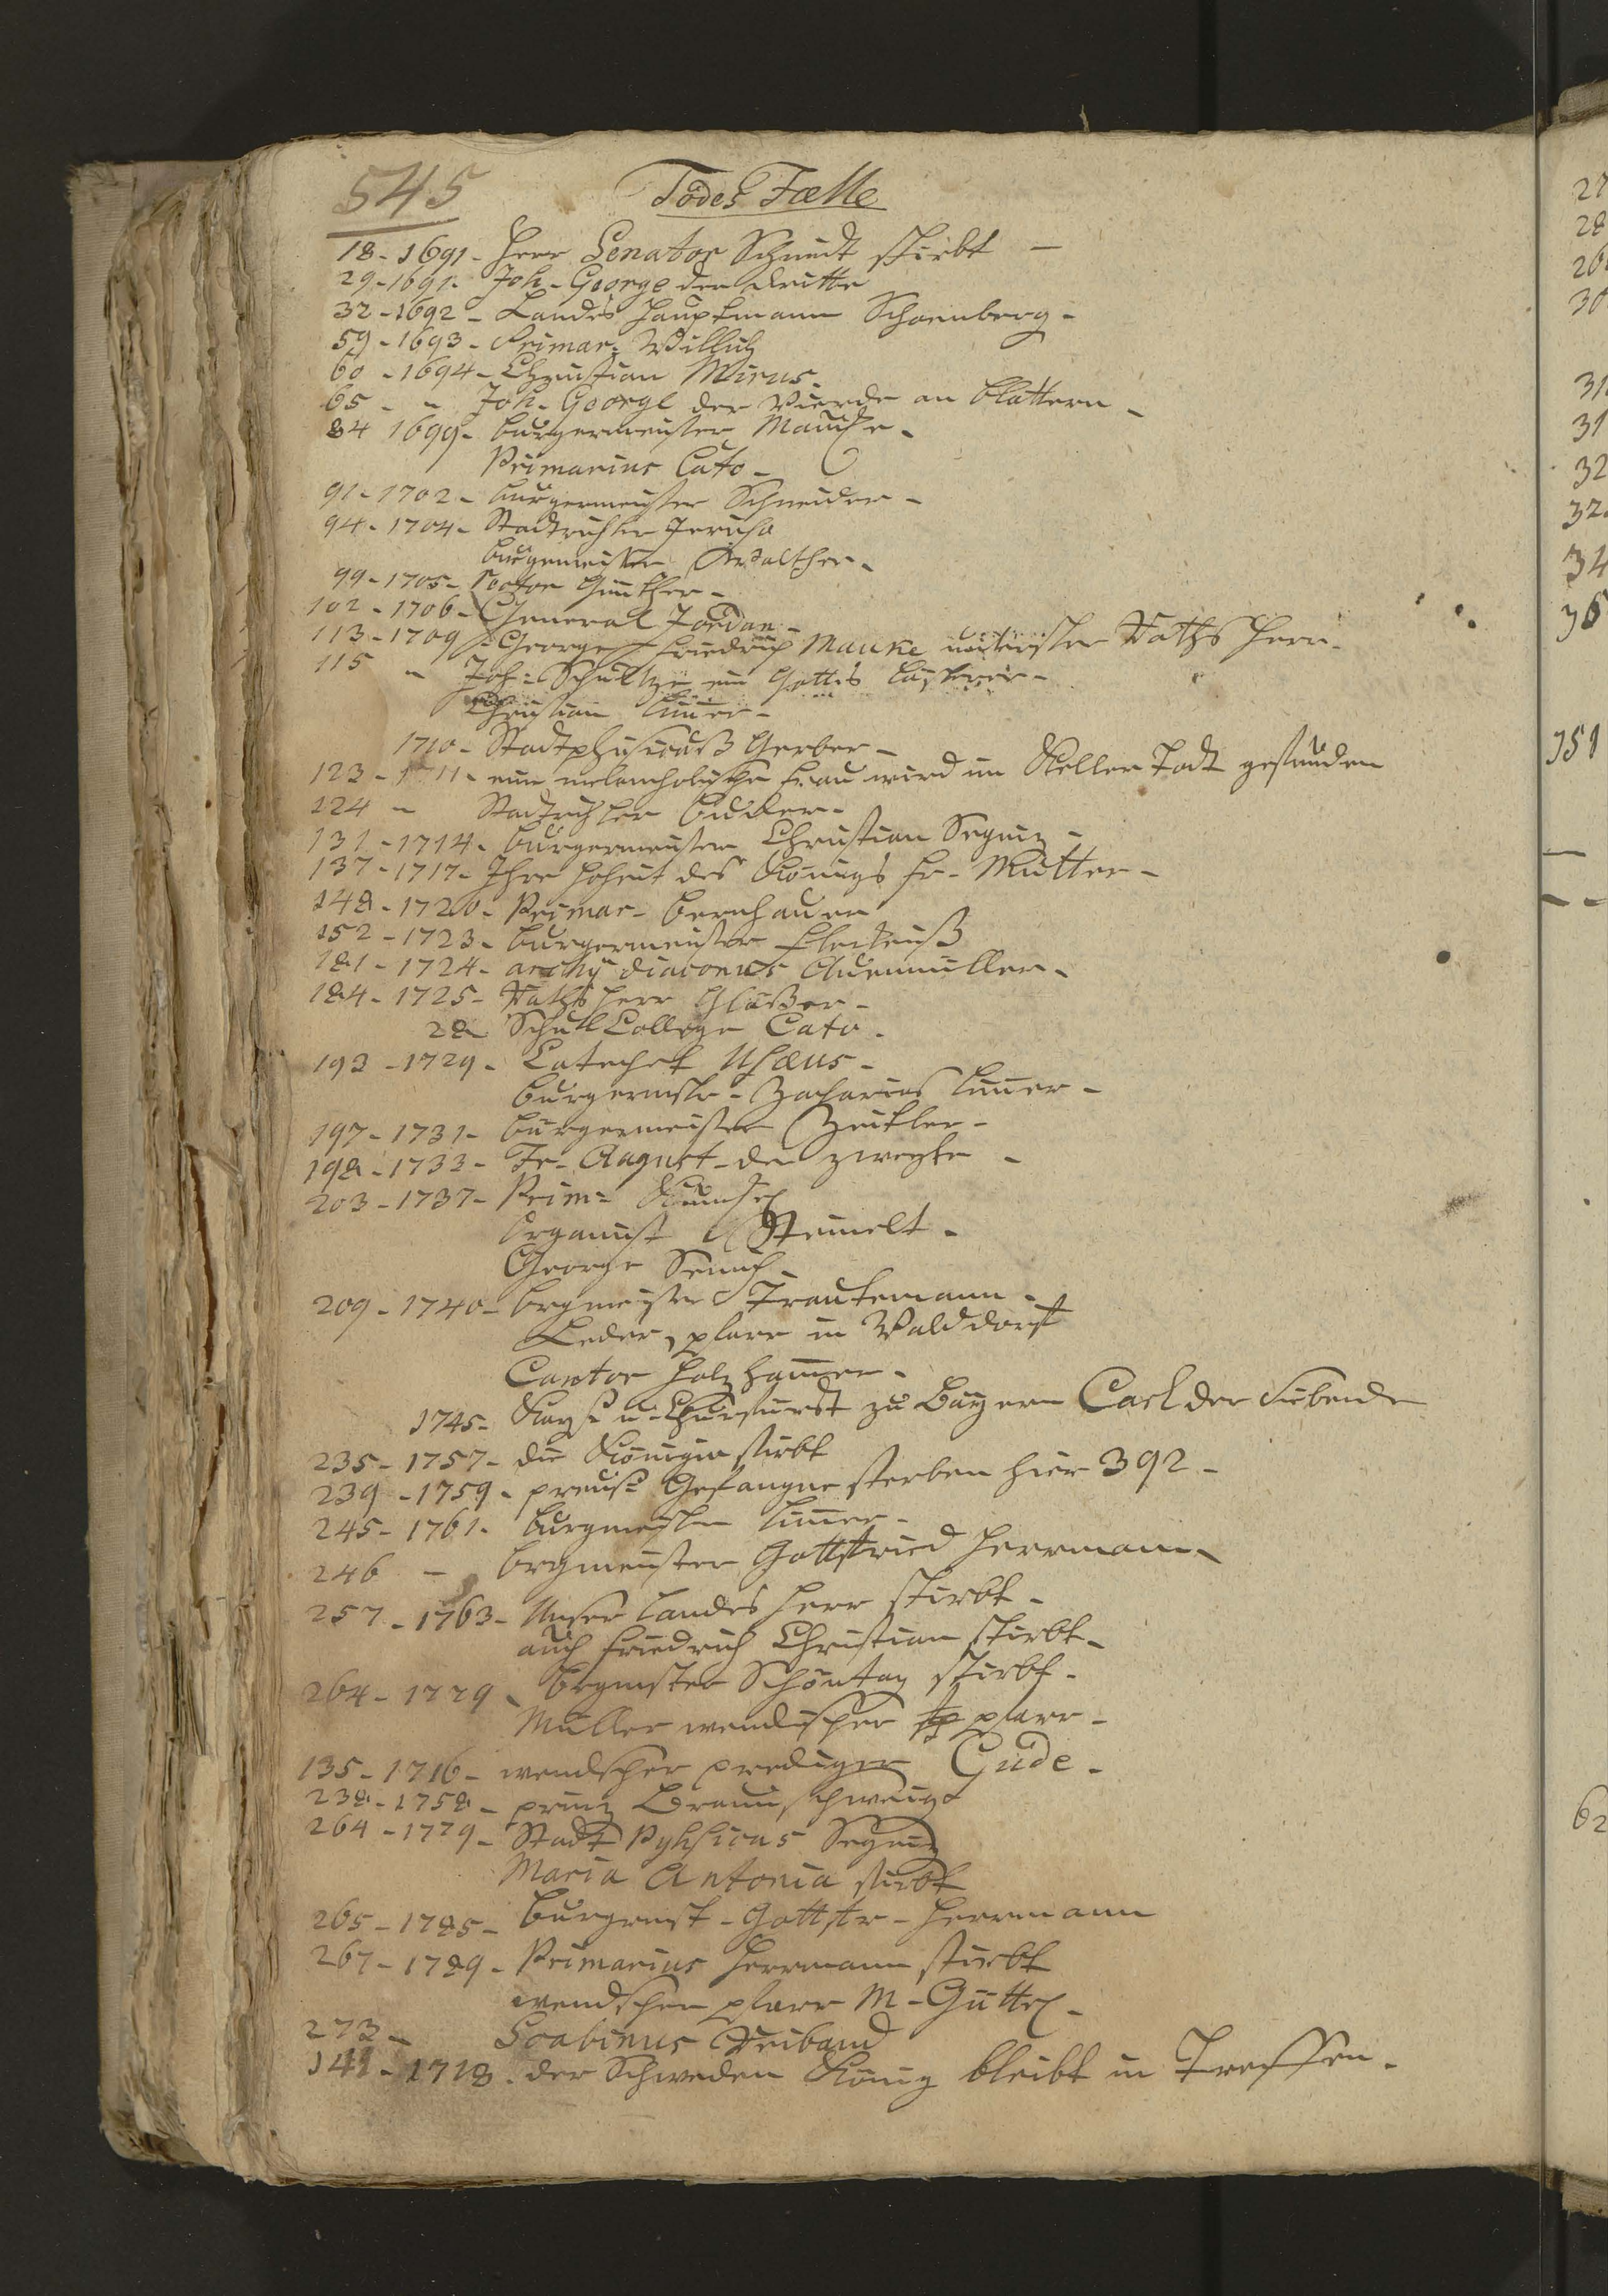 545
Todes Fælle
18 - 1691 - Herr Senator Schmidt stirbt -
29 - 1691 - Joh. George der dritte
32 - 1692 - Landes Hauptmann Schoenberg -
59 - 1693 - Primar: Willich
60 - 1694 - Christian Mirus -
65 - " Joh. George der Vierde an blattern -
84 1699 - burgermeister Mauche -
Primarius Cato -
91 - 1702 - burgermeister Schneider -
94 - 1704 - Stadtrichter
burgemeister Walther -
99 - 1705 - Rector Günther -
102 - 1706 - General Jordan -
113 - 1709 - George Friedrich Mauke Raths Herr -
115 " Joh: Schultze ein Gottes
Christian
1710 - Stadtphysicuß Gerber -
123 - 1711 - eine melancholische frau wird im Keller Todt gefunden
124 - Stadtrichter
131 - 1714 - burgermeister Christian Segniz -
137 - 1717 - Ihre Hoheit des Königs Fr. Mutter -
148 - 1720 - Primar -
152 - 1723 - burgermeister
181 - 1724 - archy diaconus
184 - 1725 - Raths Herr Glaßer -
28 Schull College Cato -
193 - 1729 - Catechet
burgermstr - Zacharias
197 - 1731 - burgermeister
198 - 1733 - Fr. August der zweyte -
203 - 1737 - Prim:
Organist
George
209 - 1740 - brgmeister Trautemann -
pfarr in Walddorff
Cantor Holzhammer -
1745 - Kayß: u. Churfürst zu Bayern Carl der Siebende
235 - 1757 - die Königin stirbt
239 - 1759 - preuß: Gefangne sterben hier 392 -
245 - 1761 - burgmeister
246 - brgmeister Gottfried Herrmann -
257 - 1763 - Unser Landes Herr stirbt -
auch Friedrich Christian stirbt -
264 - 1779 - brgmster Schöntag stirbt -
Müller wendischer pfarr -
135 - 1716 - wendscher prediger Gude -
238 - 1758 - prinz Braunschweig
264 - 1779 - Stadt Pyhsicus Segniz
Maria Antonia stirbt
265 - 1785 - Burgrmst - Gottfr - Herrmann
267 - 1789 - Primarius Herrmann stirbt
wendscher pfarr M -
273 - Scabinus
141 - 1718 - der Schweden König bleibt in Treffen -
27
28
26
30
31
31
32
32
34
36
351
62